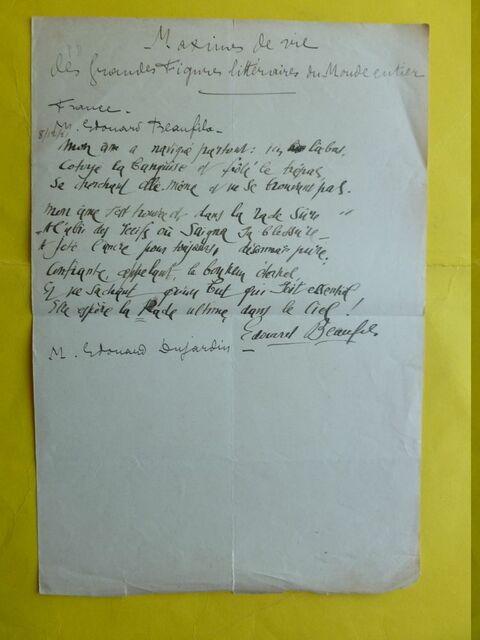 Maximes de vie
des Grandes Figures littéraires du Monde entier
France.
M. Edouard Beaufils.
Mon âme a navigué partout : ici, là bas,
Cotoyé la banquise et frôlé le trépas
Se cherchant elle-même et ne se trouvant pas.
Mon âme s'est trouvée et dans la rade sûre
A l'abri des récifs où saigna sa blessure
A jeté l'ancre pour toujours, désormais pure.
Confiante, appelant le bonheur éternel
Et ne sachant qu'un but qui soit essentiel
Elle espère la Rade ultime dans le Ciel !
Edouard Beaufils
M. Edouard Dujardin